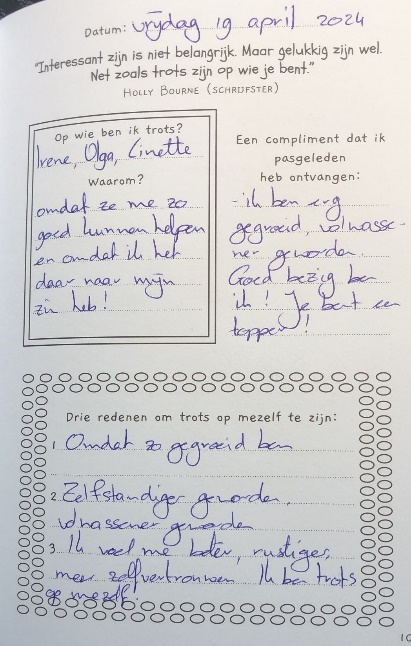 Datum: vrijdag 19 april 2024
"Interessant zijn is niet belangrijk. Maar gelukkig zijn wel.
Net zoals trots zijn op wie je bent."
Holly Bourne (schrijfster)
Op wie ben ik trots?
Irene, Olga, Linette
Waarom?
omdat ze me zo
goed kunnen helpen
en omdat ik het
daar naar mijn
zin heb!
Een compliment dat ik
pasgeleden
heb ontvangen:
- ik ben erg
gegroeid, volwasse-
ner geworden.
Goed bezig ben
ik! Je bent een
topper!
Drie redenen om trots op mezelf te zijn:
1 Omdat zo gegroeid ben
2. Zelfstandiger geworden,
volwassener geworden
3. Ik voel me beter, rustiger,
meer zelfvertrouwen Ik ben trots
op mezelf!
10